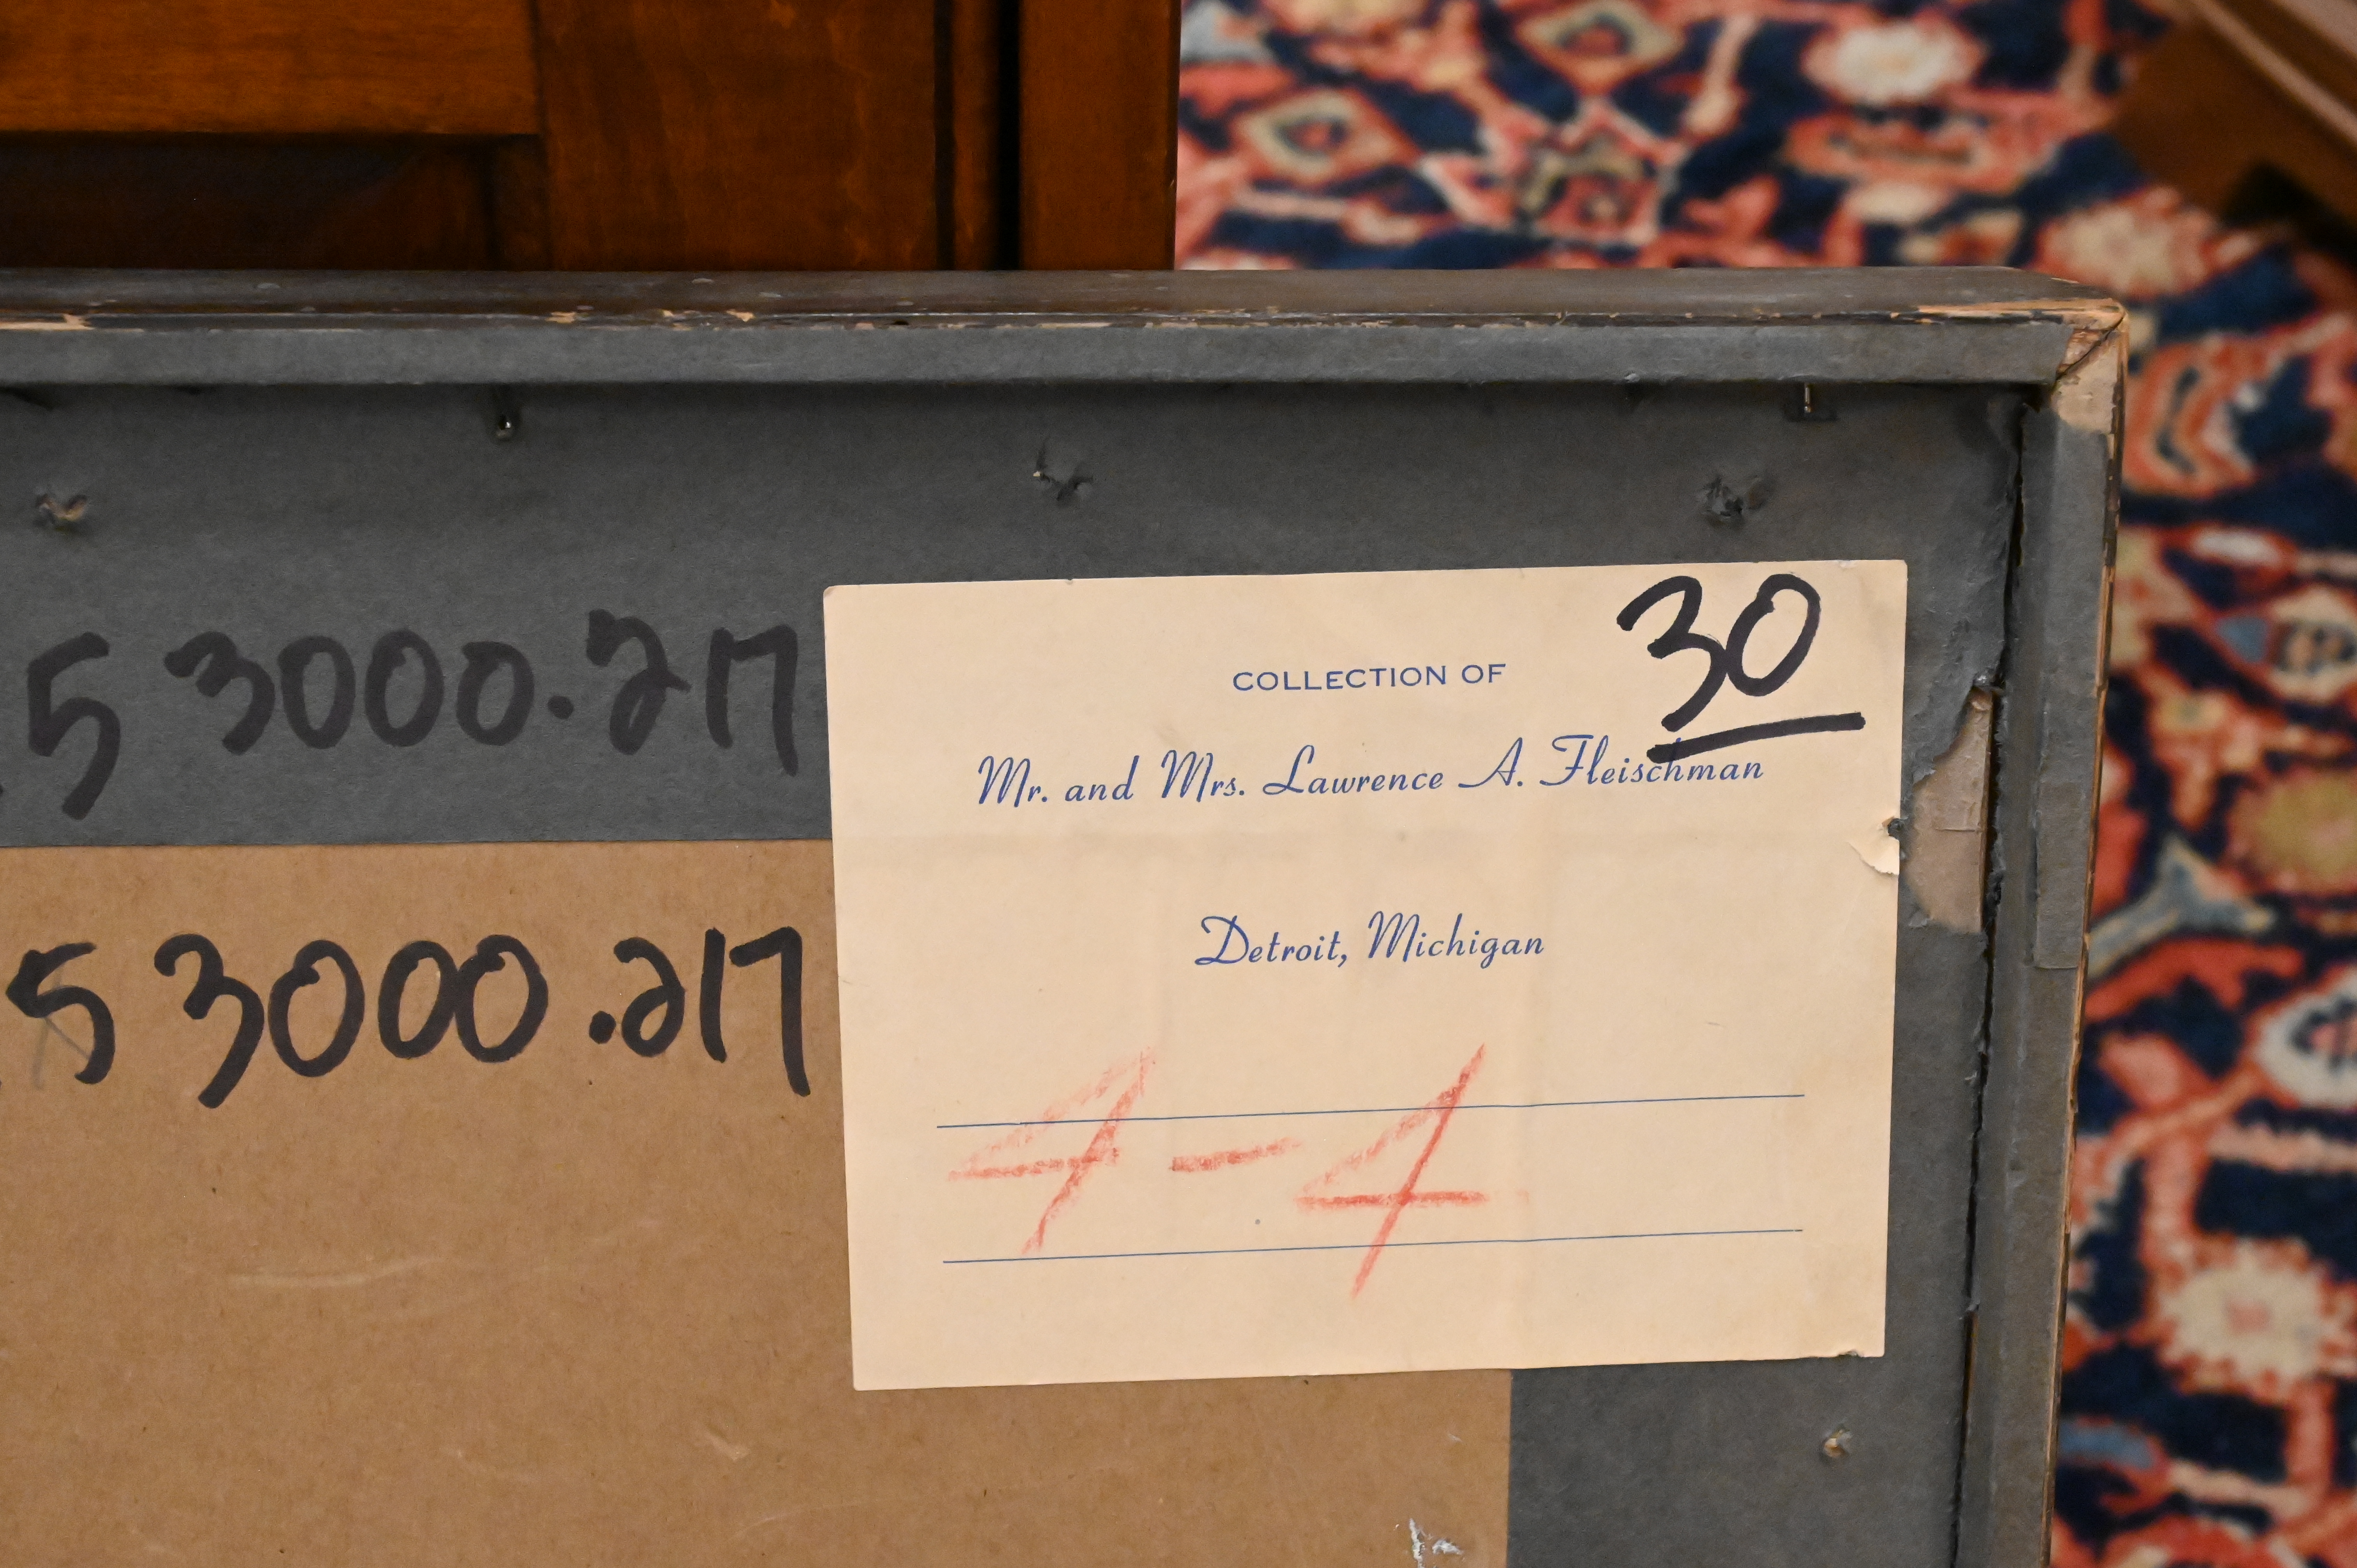 5 3000.217
30
COLLECTION OF
Mr. and Mrs. Lawrence A. Fleischman
Detroit, Michigan
5 3000.217
4-4